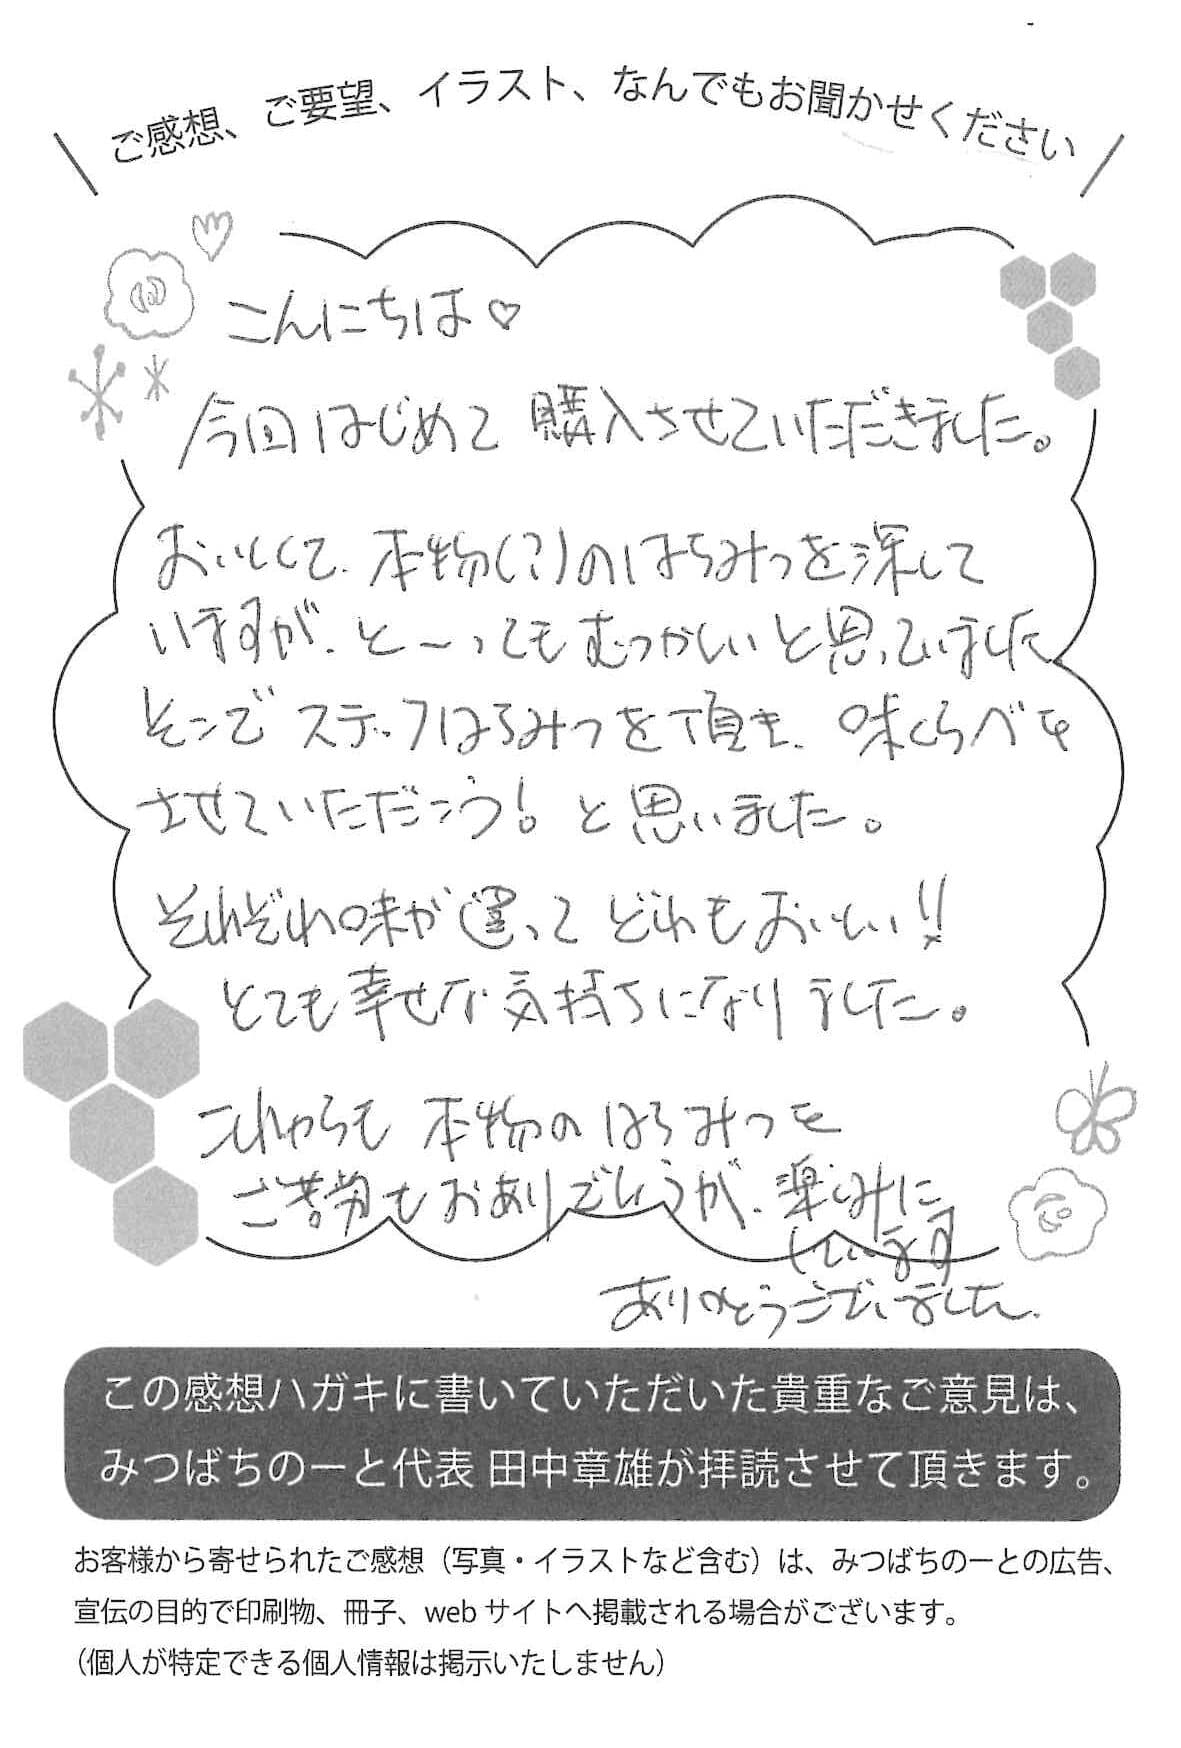 ご感想、ご要望、イラスト、なんでもお聞かせください
こんにちは♡
今回はじめて購入させていただきました。
おいしくて、本物(?)のはちみつを深して
いますが、と〜ってもむつかしいと思っていました
そこでステップはちみつを頂き、味くらべを
させていただこう!と思いました。
それぞれ味が違ってどれもおいしい!!
とても幸せな気持ちになりました。
これからも本物のはちみつを
ご苦労もおありでしょうが、楽しみに
しています
ありがとうございました。
この感想ハガキに書いていただいた貴重なご意見は、
みつばちのーと代表 田中章雄が拝読させて頂きます。
お客様から寄せられたご感想（写真・イラストなど含む）は、みつばちのーとの広告、
宣伝の目的で印刷物、冊子、web サイトへ掲載される場合がございます。
（個人が特定できる個人情報は掲示いたしません）